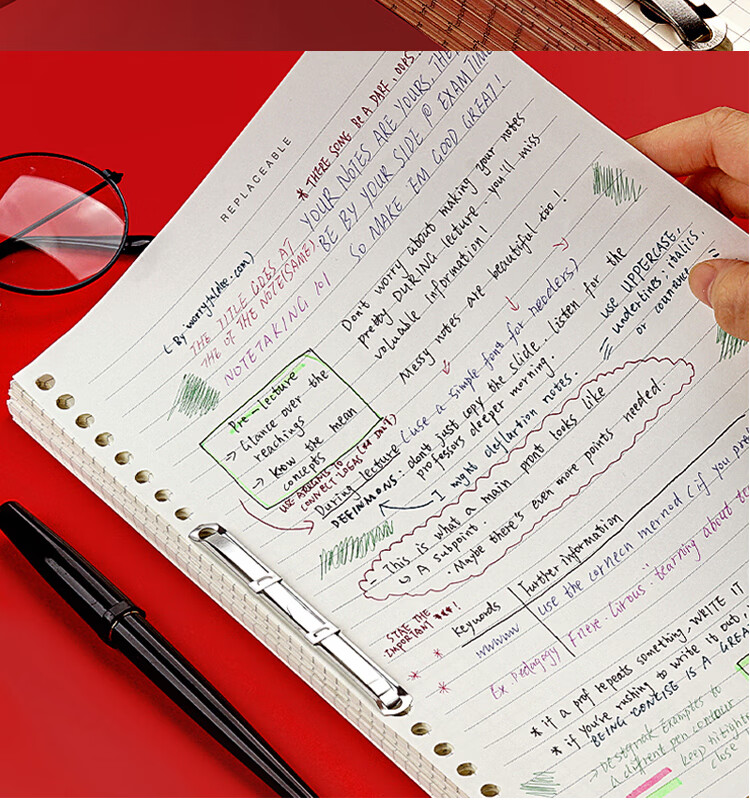 REPLACEABLE
* THERE SONG BE A DARE, OOPS..
YOUR NOTES ARE YOURS, THE
BE BY YOUR SIDE @ EXAM TIME
SO MAKE EM GOOD GREAT!
THE TITLE GOES AT
THE OF THE NOTE (SAME)
NOTETAKING 101
Don't worry about making your notes
pretty DURING lecture. you'll miss
valuable Information!
Messy notes are beautiful too!
Pre-lecture
→ Glance over the
reachings
→ Know the mean
concepts
CONNECT IDEAS
During lecture (use a simple font for headers)
DEFINMONS: don't just copy the slide, listen for the
professors deeper morning.
use UPPERCASE,
underlines, italics.
or
I might
notes.
- This is what a main pront looks like
↳ A subpoint.
- Maybe there's even more points needed.
STAE THE
IMPORTANT
!
* *
*
Keywords
Further information
use the cornecn mernod (if you
Ex pedagogy
"learning about
* if a prof repeats something, WRITE IT
* if you're rushing to write it out,
BEING CONCISE IS A GREA
Examples to
A different pen
close